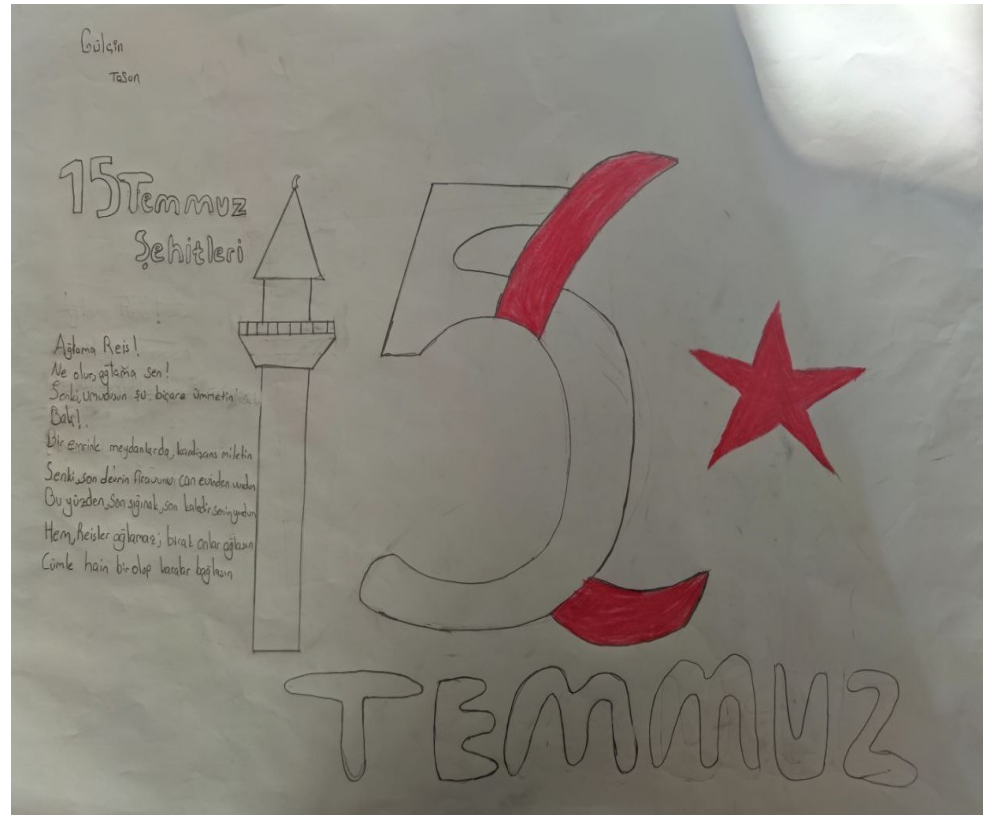 Gülçin
Tosun
15 Temmuz
Şehitleri
Ağlama Reis!
Ne olur, ağlama sen!
Senki, umudusun şu biçare ümmetin
Bak!
Bir emrinle meydanlarda, miletin
Senki, son devrin firavununu can evinden vurdun
Bu yüzden, son sığınak, son kaledir senin yurdun
Hem, Reisler ağlamaz; bırak onlar ağlasın
Cümle hain bir olup karalar bağlasın
15
TEMMUZ